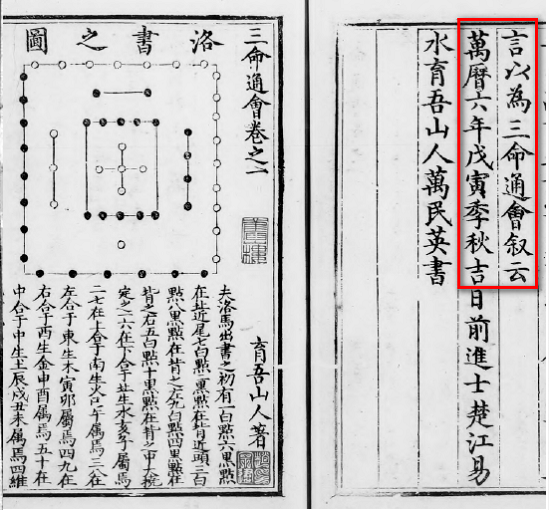 言以為三命通會叙云
萬曆六年戊寅季秋吉日前進士楚江易
水育吾山人萬民英書
三命通會卷之一
育吾山人著
洛書之圖
夫洛馬出書之初有一白點六黑點
在背近尾七白點二黑點在背近頭三白
點八黑點在背之左九白點四黑點在
背之右五白點十黑點在背之中大撓
定之一六在下合于北生水亥子屬焉
二七在上合于南生火巳午屬焉三八在
左合于東生木寅卯屬焉四九在
右合于西生金申酉屬焉五十在
中合于中生土辰戌丑未屬焉四維